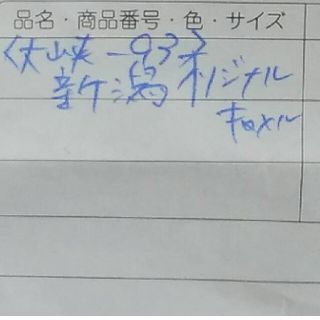 品名・商品番号・色・サイズ
-93〉
新潟オリジナル
キャメル